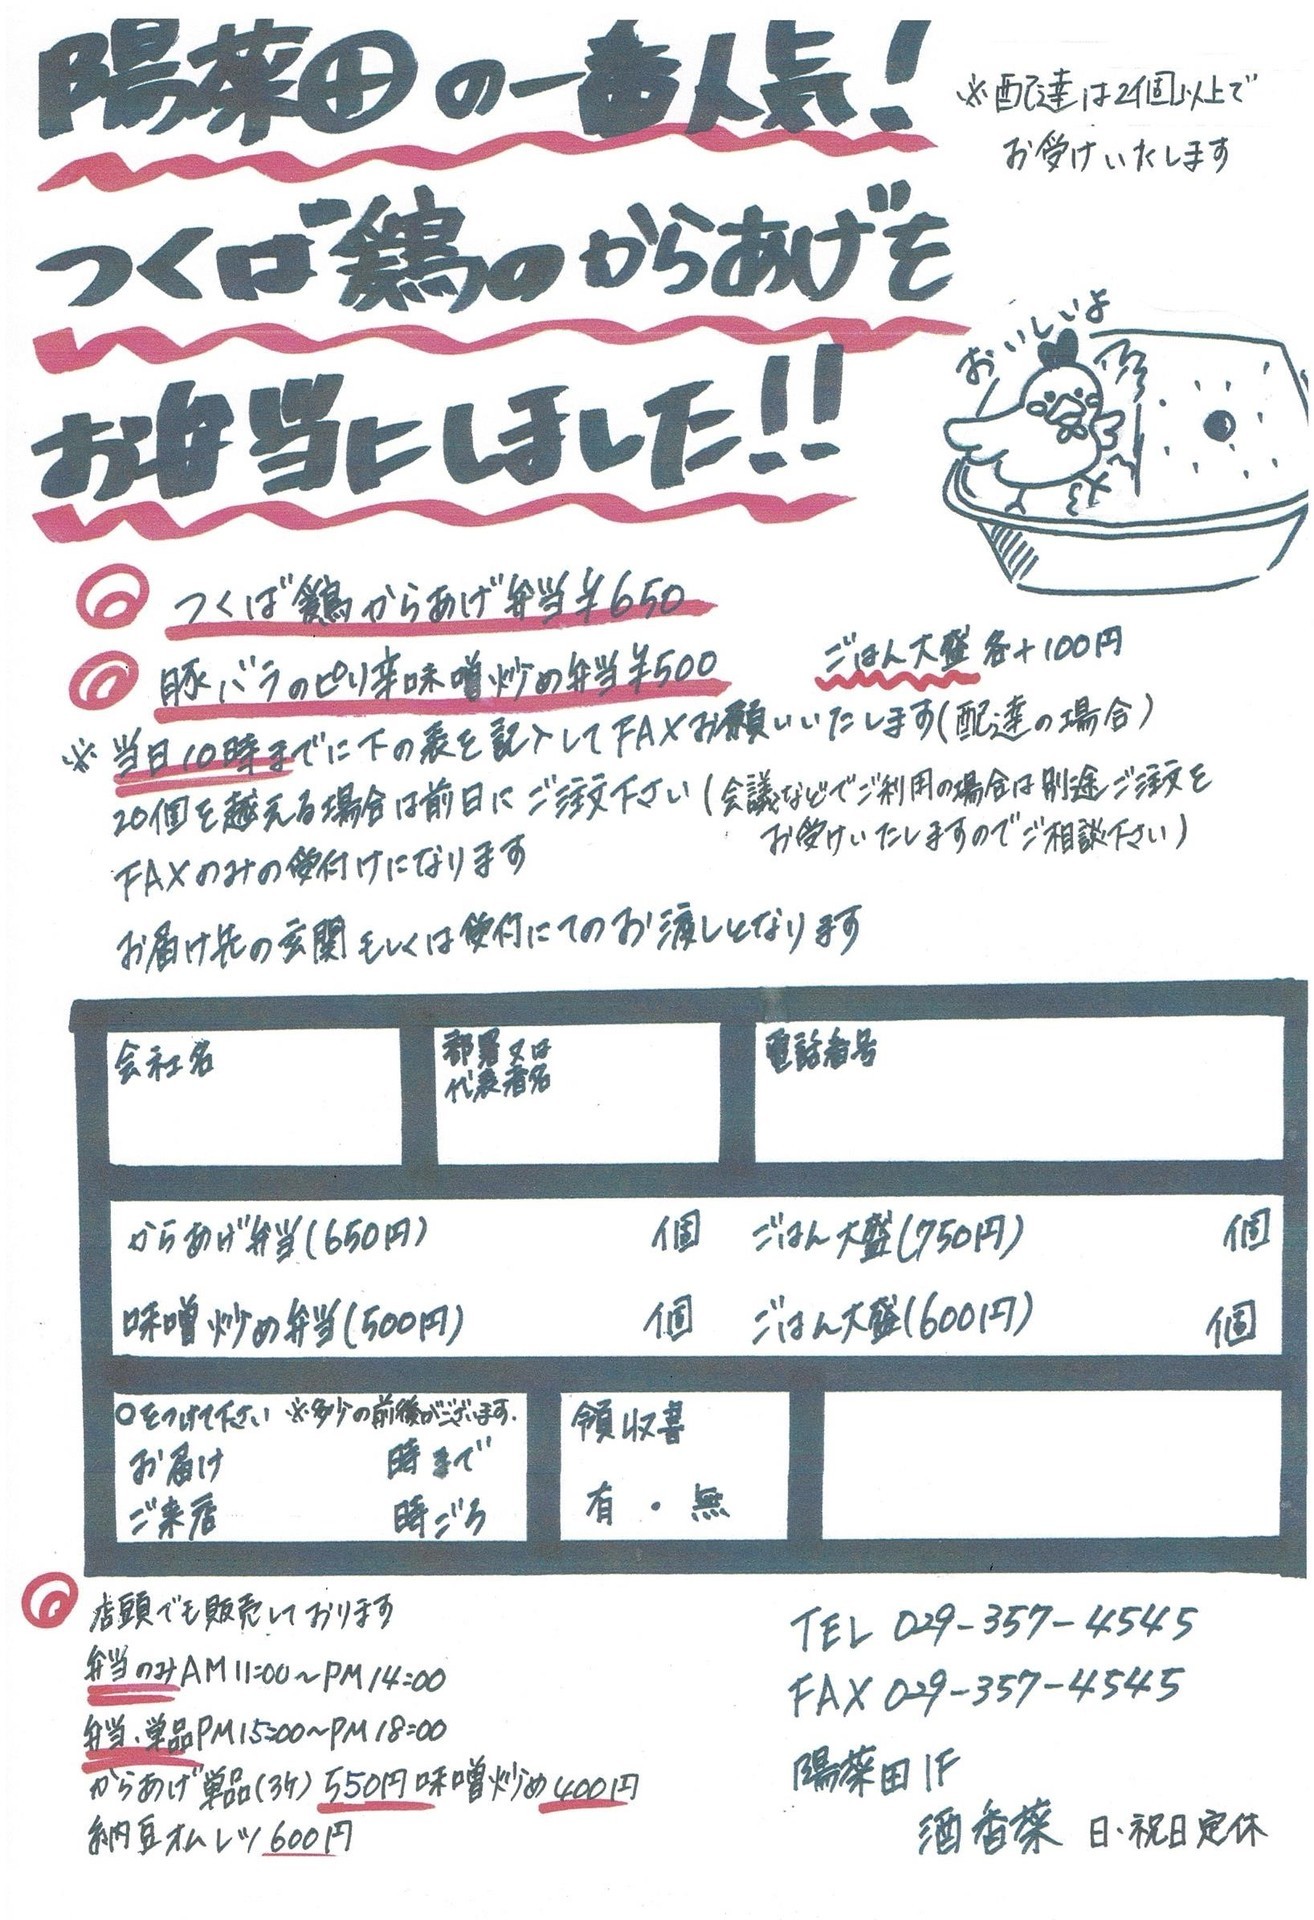 陽菜田の一番人気！
※配達は2個以上で
お受けいたします
つくば鶏のからあげを
お弁当にしました!!
おいしいよ
つくば鶏からあげ弁当¥650
豚バラのピリ辛味噌炒め弁当¥500
ごはん大盛各+100円
※当日10時までに下の表を記入してFAXお願いいたします(配達の場合)
20個を越える場合は前日にご注文下さい(会議などでご利用の場合は別途ご注文を
お受けいたしますのでご相談下さい)
FAXのみの受付けになります
お届け先の玄関もしくは受付にてのお渡しとなります
会社名
部署又は
代表者名
電話番号
からあげ弁当(650円) 個 ごはん大盛(750円) 個
味噌炒め弁当(500円) 個 ごはん大盛(600円) 個
○をつけて下さい ※多少の前後がございます.
お届け 時まで
ご来店 時ごろ
領収書
有・無
店頭でも販売しております
弁当のみAM11:00〜PM14:00
弁当・単品PM15:00〜PM18:00
からあげ単品(3ケ) 550円 味噌炒め400円
納豆オムレツ600円
TEL 029-357-4545
FAX 029-357-4545
陽菜田1F
酒香菜 日・祝日定休